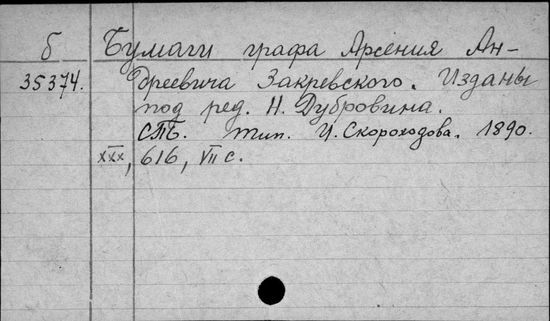 б Бумаги графа Арсения Ан-
35374. дреевича Закревского. Изданы
под ред. Н. Дубровина.
СПБ. тип. И. Скороходова. 1890.
XXX, 616, VII с.